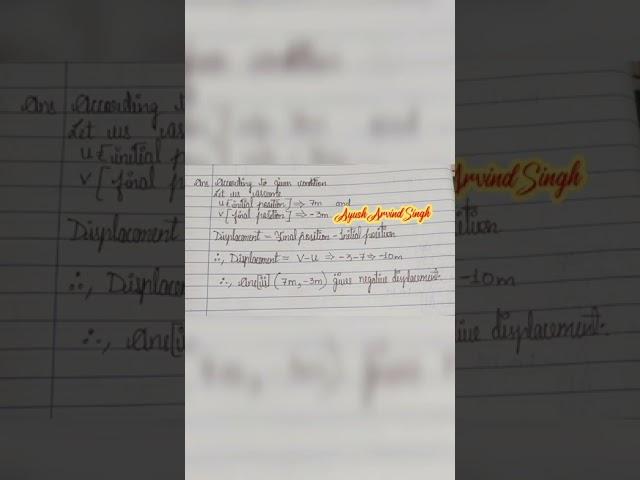 Ans According to given condition
Let us assume
u[initial position] ⇒ 7m and
v [final position] ⇒ -3m Ayush Arvind Singh
Displacement = Final position - Initial position
∴, Displacement = v-u ⇒ -3-7 ⇒ -10m
∴, Ans[ii] (7m, -3m) gives negative displacement.